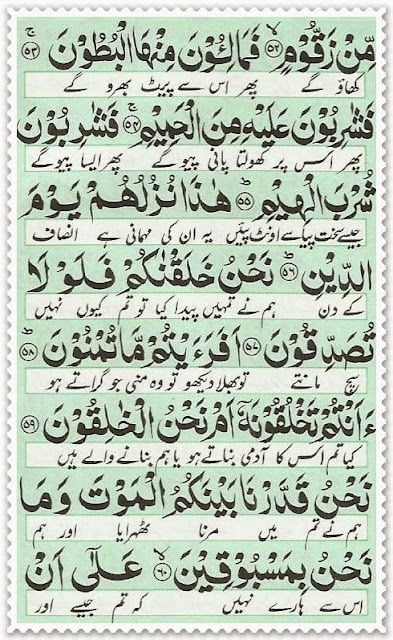 مِّنْ زَقُّوْمٍ ﴿٥٢﴾ فَمَالِـُٔوْنَ مِنْهَا الْبُطُوْنَ ﴿٥٣﴾
کھاؤ گے پھر اس سے پیٹ بھرو گے
فَشٰرِبُوْنَ عَلَيْهِ مِنَ الْحَمِيْمِ ﴿٥٤﴾ فَشٰرِبُوْنَ
پھر اس پر کھولتا پانی پیو گے پھر ایسا پیو گے
شُرْبَ الْهِيْمِ ﴿٥٥﴾ هٰذَا نُزُلُهُمْ يَوْمَ
جیسے سخت پیاسے اونٹ پئیں یہ ان کی مہمانی ہے انصاف
الدِّيْنِ ﴿٥٦﴾ نَحْنُ خَلَقْنٰكُمْ فَلَوْ لَا
کے دن ہم نے تمہیں پیدا کیا تو تم کیوں نہیں
تُصَدِّقُوْنَ ﴿٥٧﴾ اَفَرَءَيْتُمْ مَّا تُمْنُوْنَ ﴿٥٨﴾
سچ مانتے تو بھلا دیکھو تو وہ منی جو گراتے ہو
ءَاَنْتُمْ تَخْلُقُوْنَهٗۤ اَمْ نَحْنُ الْخٰلِقُوْنَ ﴿٥٩﴾
کیا تم اس کا آدمی بناتے ہو یا ہم بنانے والے ہیں
نَحْنُ قَدَّرْنَا بَيْنَكُمُ الْمَوْتَ وَمَا
ہم نے تم میں مرنا ٹھہرایا اور ہم
نَحْنُ بِمَسْبُوْقِيْنَ ﴿٦٠﴾ عَلٰۤى اَنْ
اس سے ہارے نہیں کہ تم جیسے اور